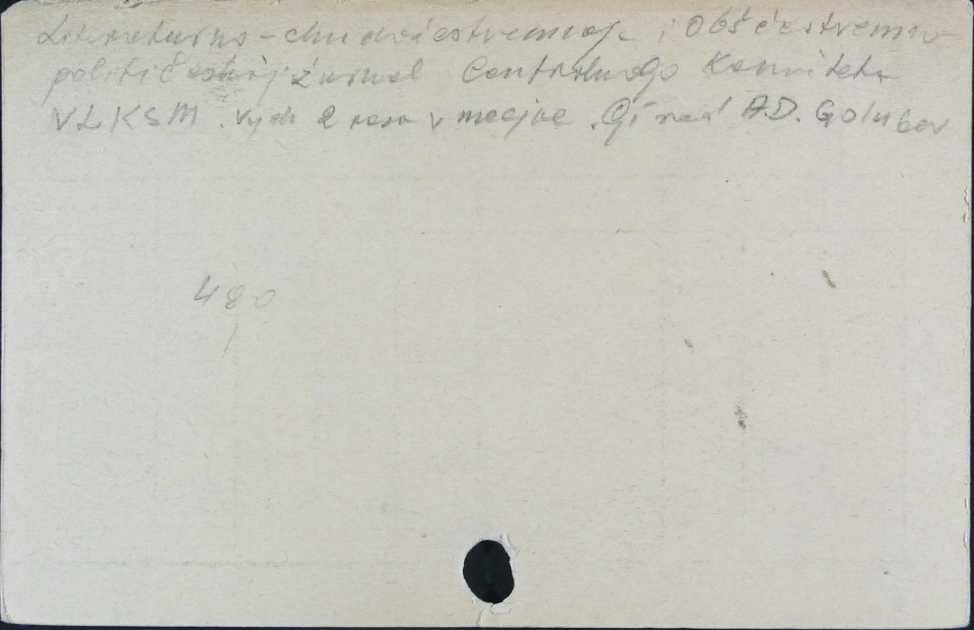 Literaturno-chudožestvennoje i obščestvenno
političeskij žurnal Centralnogo Komiteta
VLKSM. Vych 2 raza v mesjac. Gl red A.D. Golubev
480